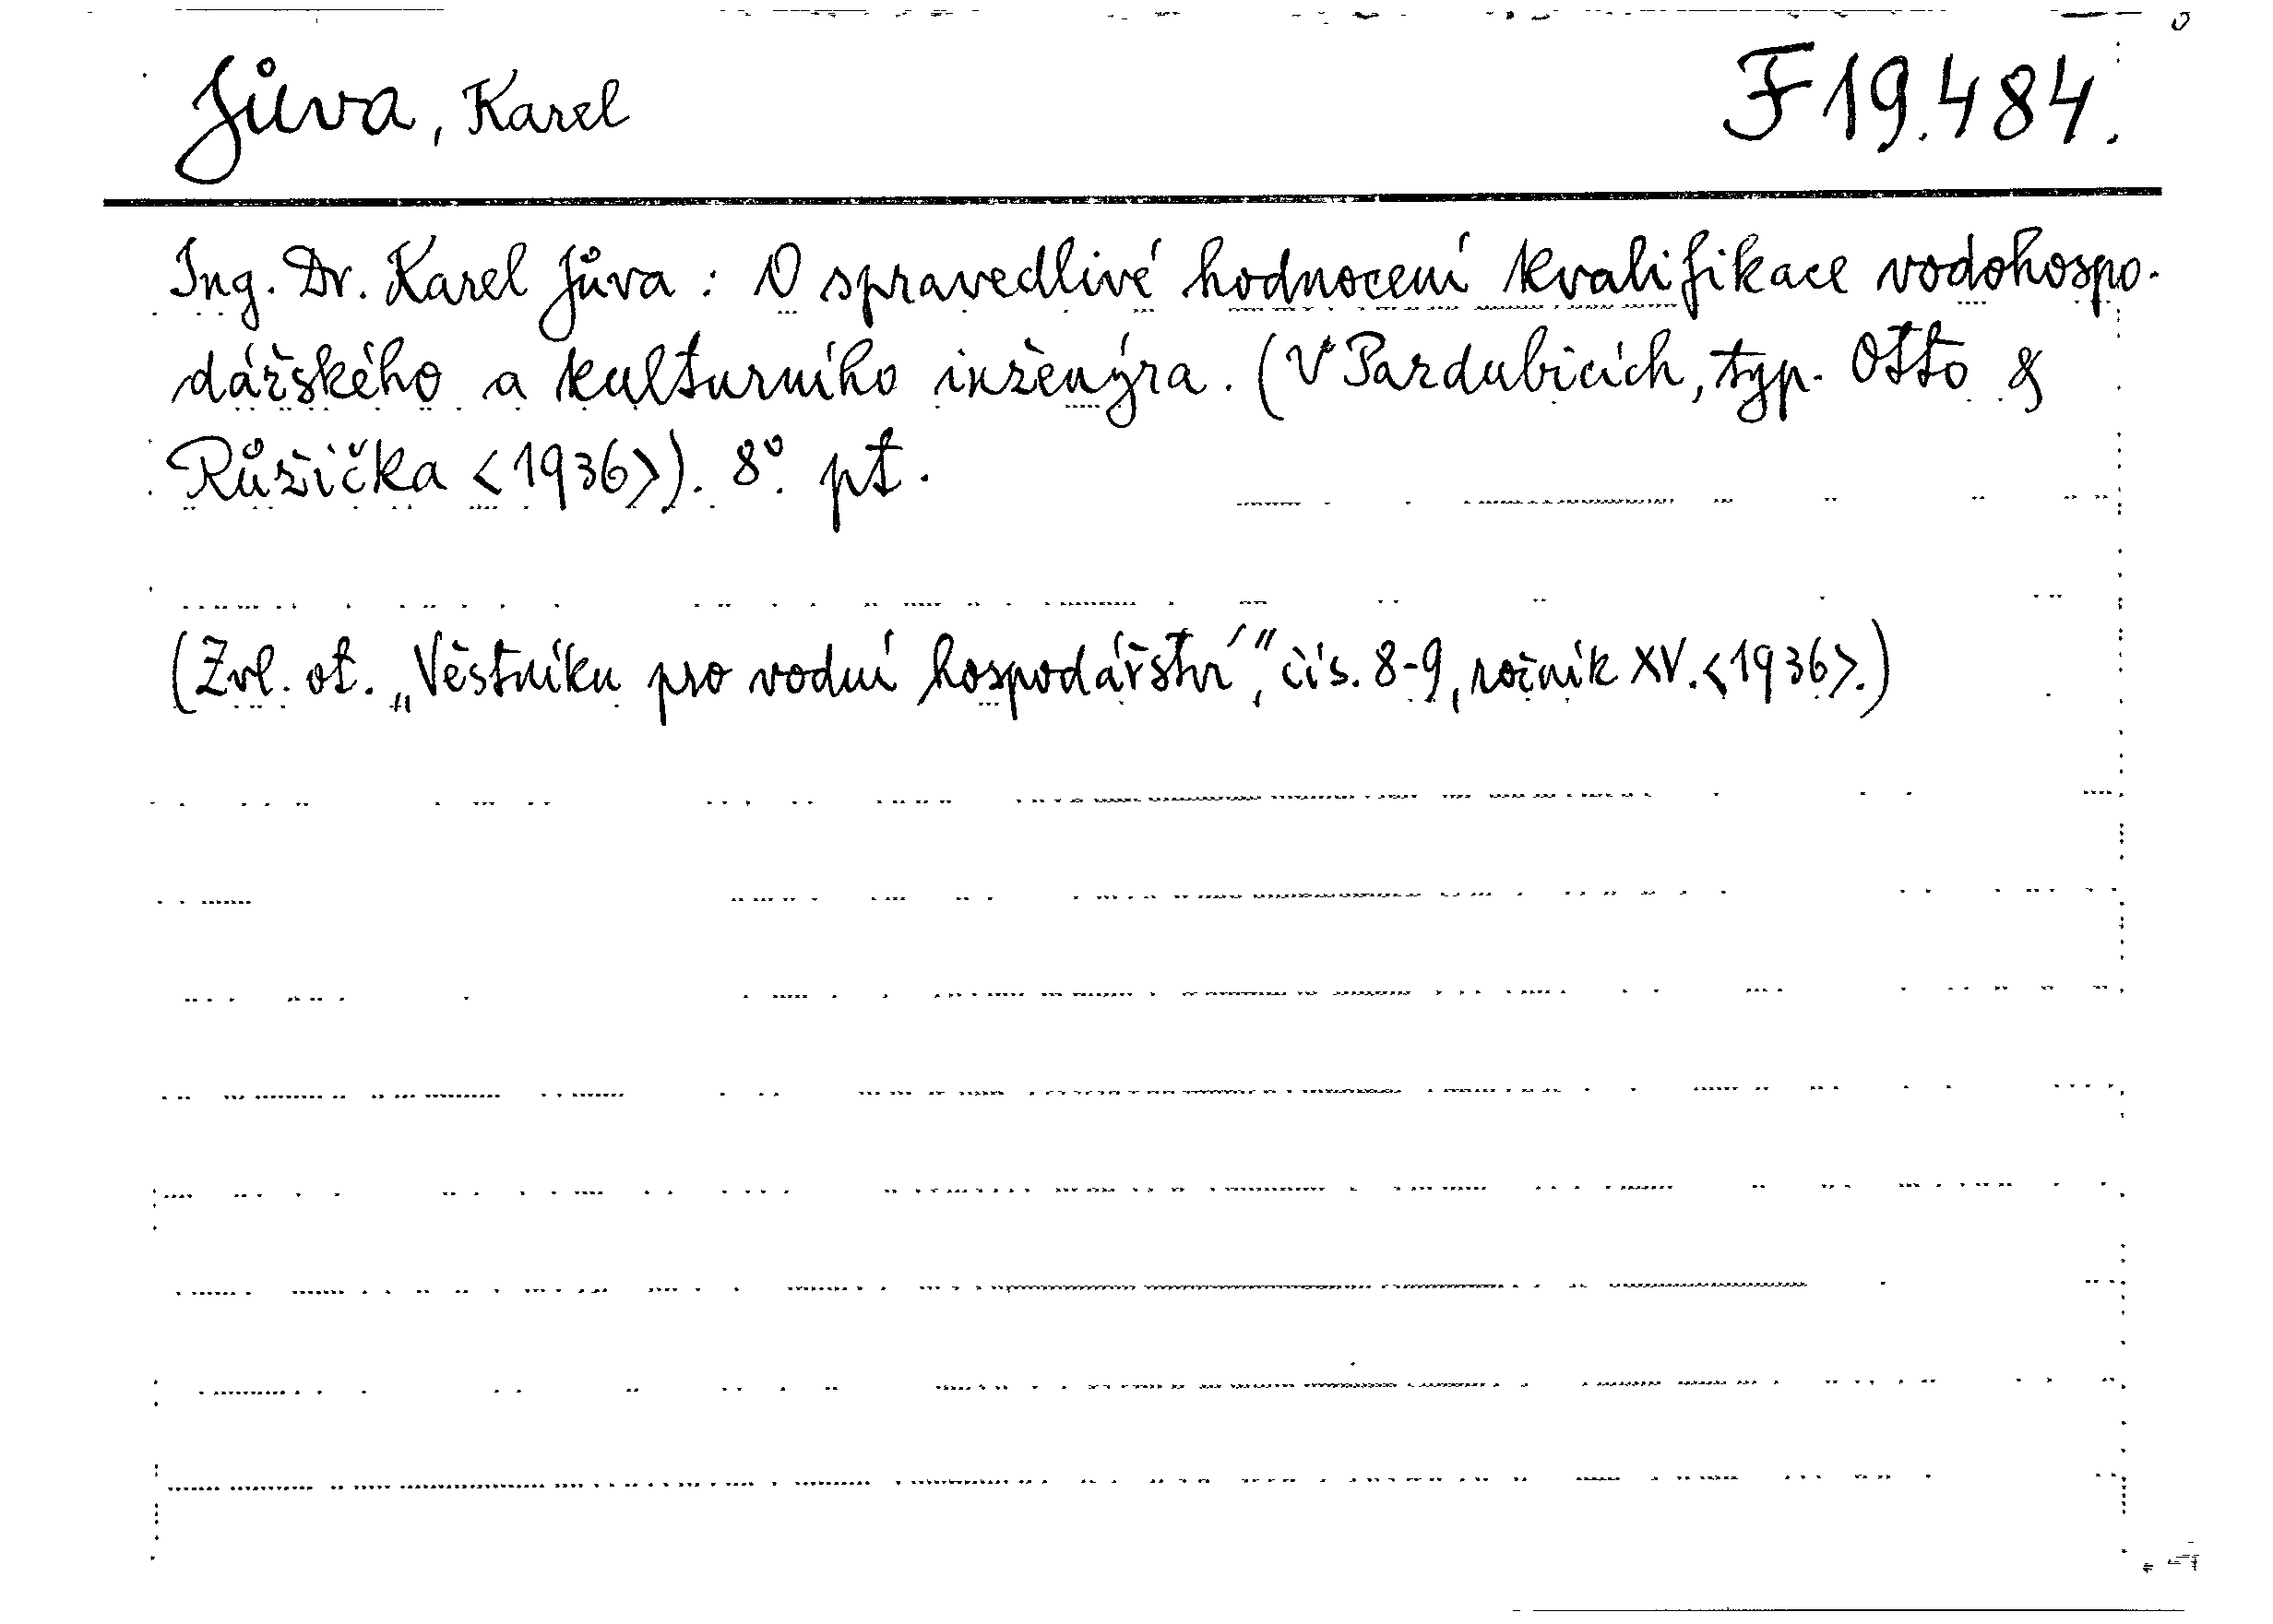 Jůva, Karel F 19.484.
Ing. Dr. Karel Jůva : O spravedlivé hodnocení kvalifikace vodohospo-
dářského a kulturního inženýra. (V Pardubicích, typ. Otto &
Růžička <1936>). 8º. pt.
(Zvl. ot. „Věstníku pro vodní hospodářství“, čís. 8-9, ročník XV. <1936>.)